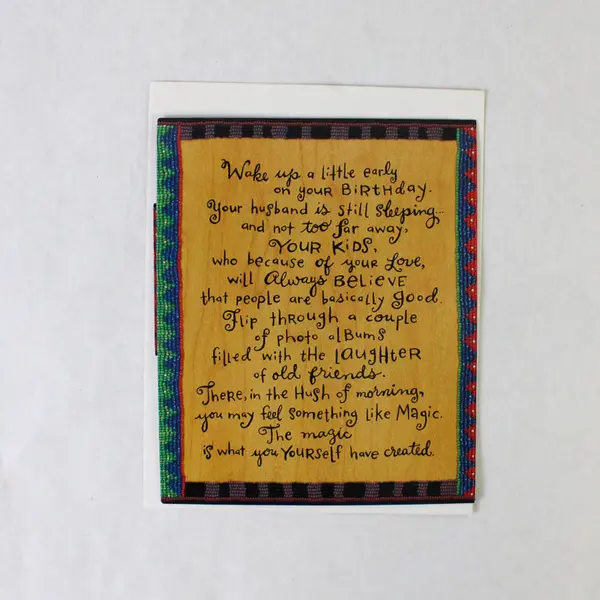 Wake up a little early
on your BiRTHday.
Your husband is still sleeping...
and not too far away,
YOUR KiDS,
who because of your Love,
will Always BELiEVE
that people are basically good.
Flip through a couple
of photo alBums
filled with the LAUGHTER
of old friends.
There, in the Hush of morning,
you may feel something like Magic.
The magic
is what you YOURSelf have created.